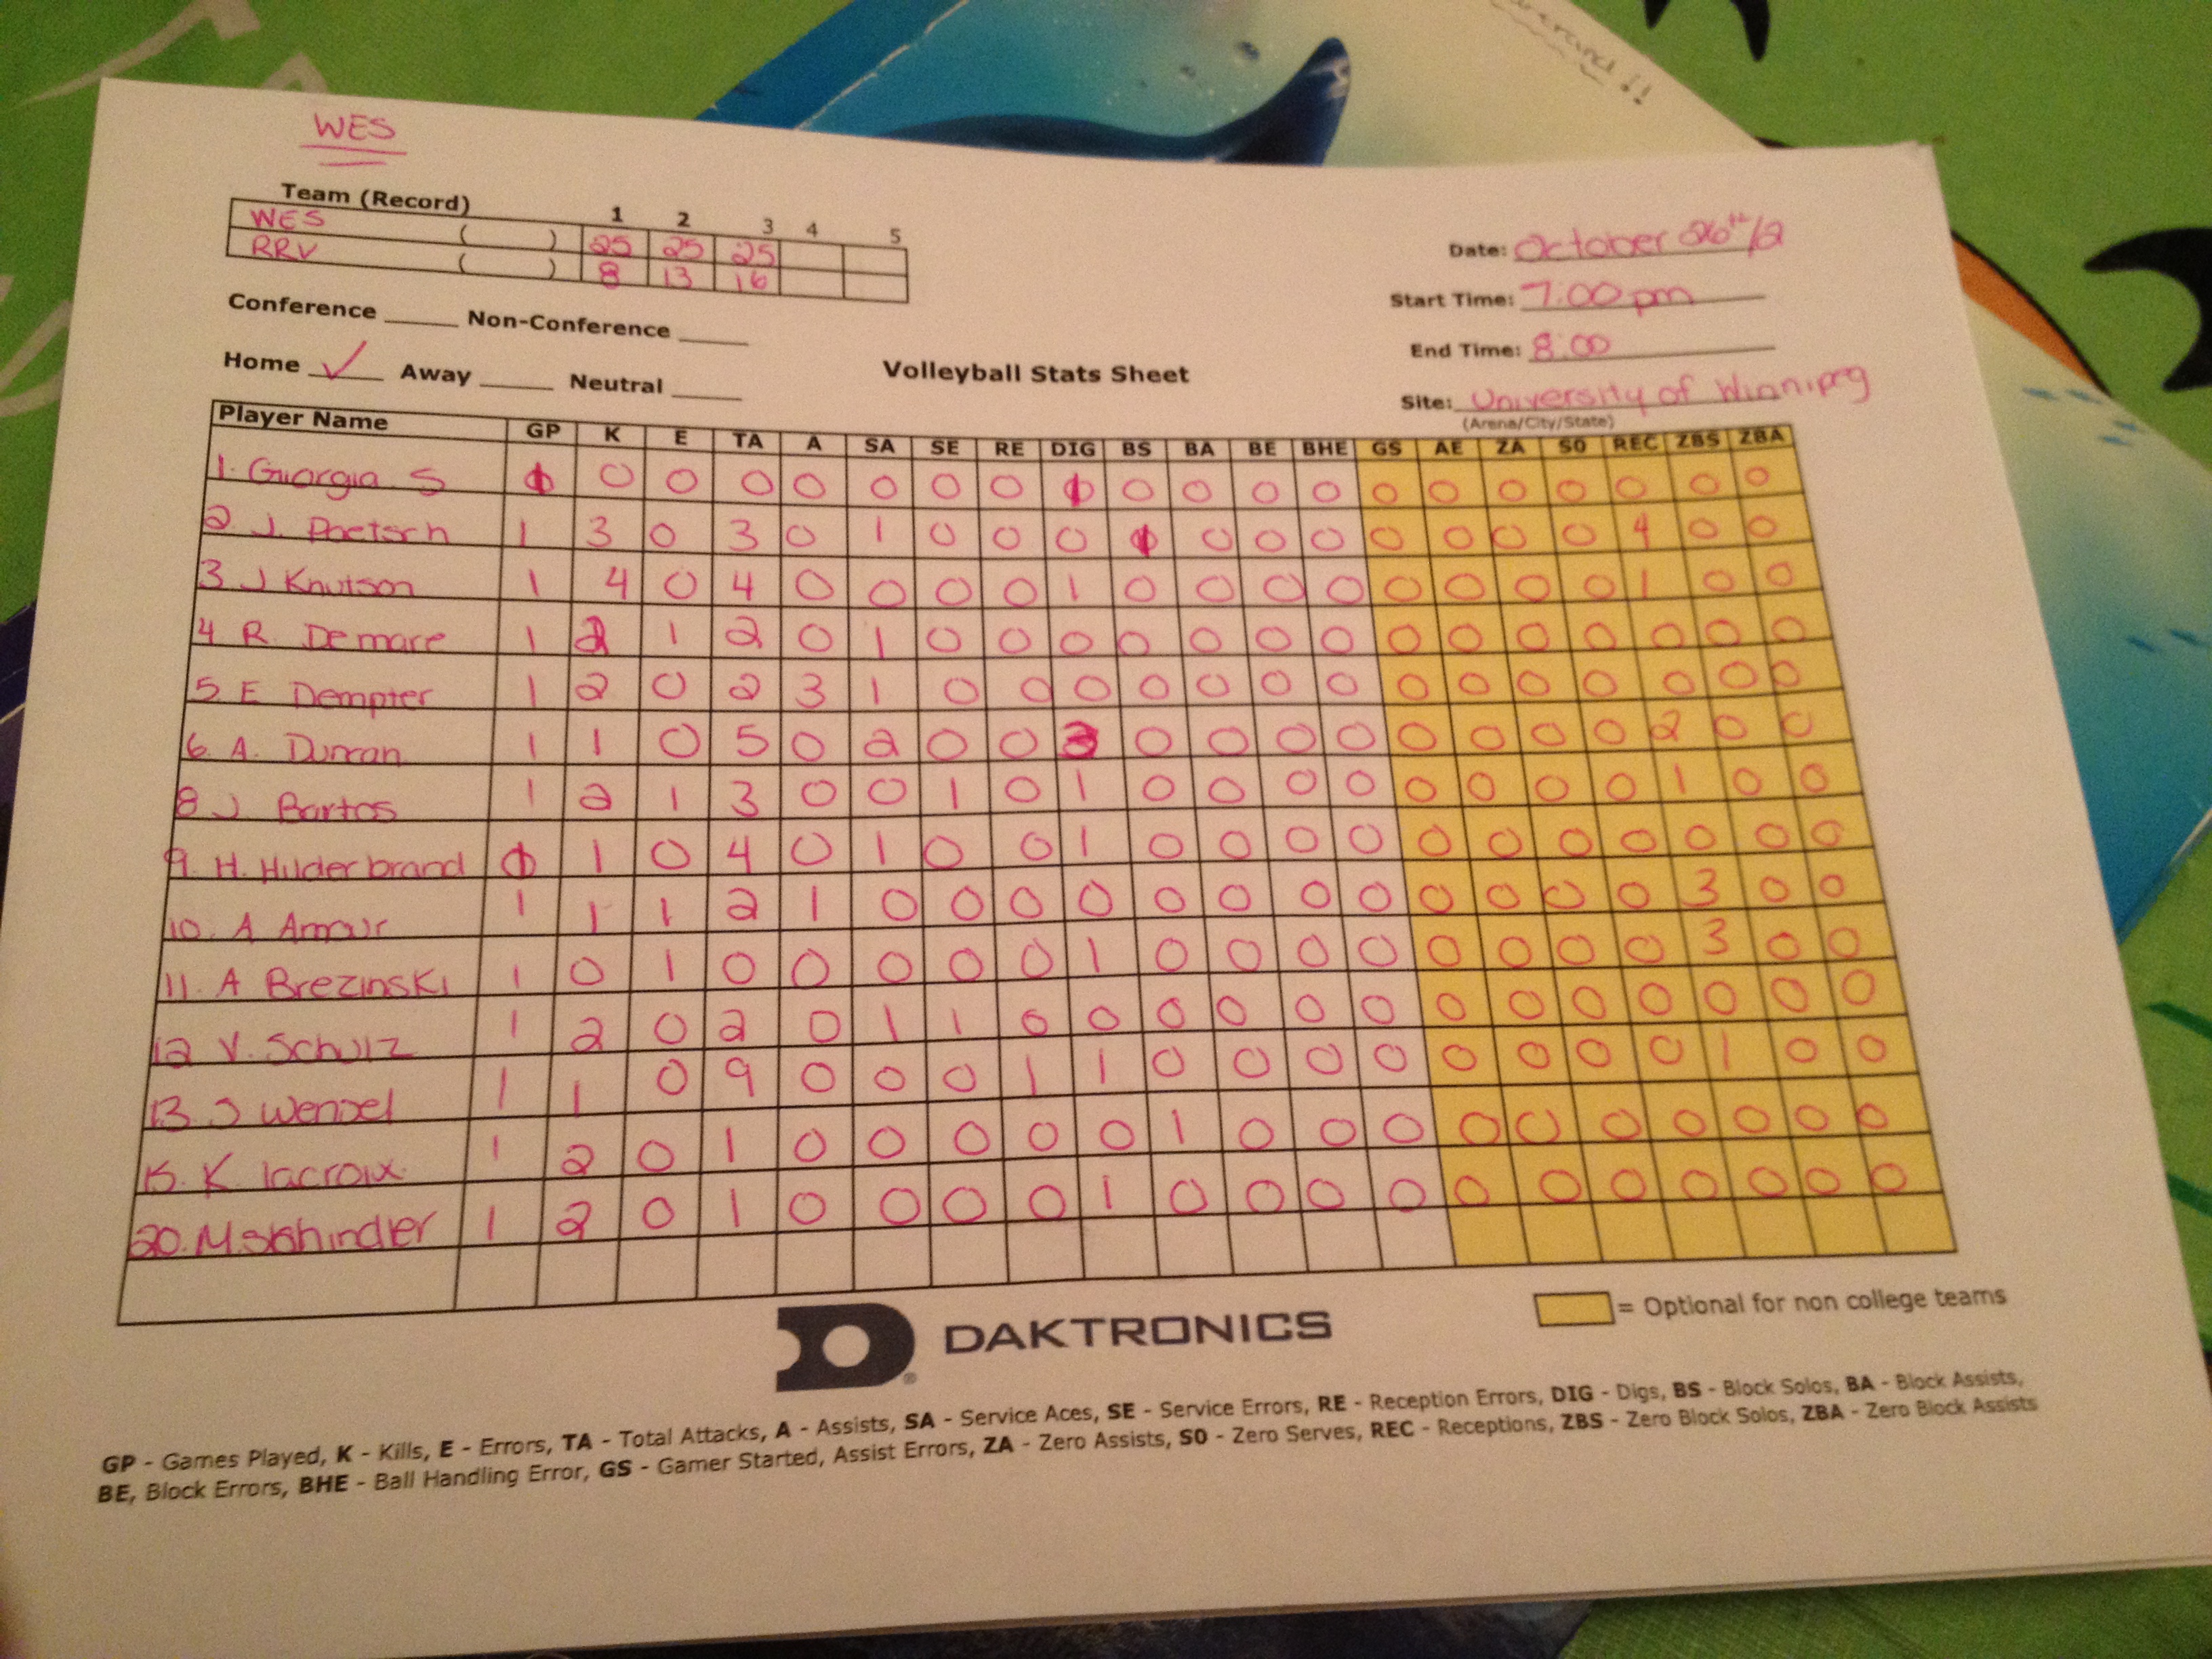 WES
Team (Record) 1 2 3 4 5
WES ( ) 25 25 25
RRV ( ) 8 13 16
Conference Non-Conference
Home ✓ Away Neutral
Volleyball Stats Sheet
Date: October 26th/2
Start Time: 7:00 pm
End Time: 8:00
Site: University of Winnipeg
(Arena/City/State)
Player Name GP K E TA A SA SE RE DIG BS BA BE BHE GS AE ZA S0 REC ZBS ZBA
1. Giorgia S 1 0 0 0 0 0 0 0 1 0 0 0 0 0 0 0 0 0 0 0
2 J. Poetsch 1 3 0 3 0 1 0 0 0 1 0 0 0 0 0 0 0 4 0 0
3 J Knutson 1 4 0 4 0 0 0 0 1 0 0 0 0 0 0 0 0 1 0 0
4 R. Demare 1 2 1 2 0 1 0 0 0 0 0 0 0 0 0 0 0 0 0 0
5. E Dempter 1 2 0 2 3 1 0 0 0 0 0 0 0 0 0 0 0 0 0 0
6. A. Duncan 1 1 0 5 0 2 0 0 3 0 0 0 0 0 0 0 0 2 0 0
8 J. Bartos 1 2 1 3 0 0 1 0 1 0 0 0 0 0 0 0 0 1 0 0
9. H. Hilderbrand 1 1 0 4 0 1 0 0 1 0 0 0 0 0 0 0 0 0 0 0
10. A Amour 1 1 1 2 1 0 0 0 0 0 0 0 0 0 0 0 0 3 0 0
11. A Brezinski 1 0 1 0 0 0 0 0 1 0 0 0 0 0 0 0 0 3 0 0
12 V. Schulz 1 2 0 2 0 1 1 0 0 0 0 0 0 0 0 0 0 0 0 0
13. J Wenzel 1 1 0 9 0 0 0 1 1 0 0 0 0 0 0 0 0 1 0 0
15. K. lacroix 1 2 0 1 0 0 0 0 0 1 0 0 0 0 0 0 0 0 0 0
20. M. Schindler 1 2 0 1 0 0 0 0 1 0 0 0 0 0 0 0 0 0 0 0
= Optional for non college teams
DAKTRONICS
GP - Games Played, K - Kills, E - Errors, TA - Total Attacks, A - Assists, SA - Service Aces, SE - Service Errors, RE - Reception Errors, DIG - Digs, BS - Block Solos, BA - Block Assists,
BE, Block Errors, BHE - Ball Handling Error, GS - Gamer Started, Assist Errors, ZA - Zero Assists, S0 - Zero Serves, REC - Receptions, ZBS - Zero Block Solos, ZBA - Zero Block Assists